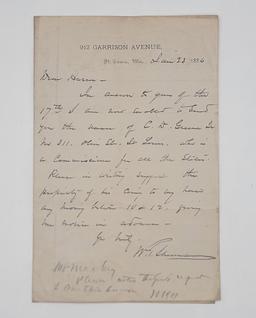 912 GARRISON AVENUE,
St. Louis, Mo., Jan 23 1886
Dear
In answer to yours of the
17th I am now enabled to send
you the name of C. D. Greene Jr
No 311. Olive St. St Louis. who is
a Commissioner for all the States.
Please in writing suggest the
propriety of his coming to my house
any morning between 10 & 12. giving
me notice in advance —
Yrs truly
W. T. Sherman